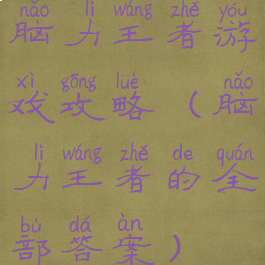 nǎo lì wáng zhě yóu
脑力王者游
xì gōng lüè nǎo
戏攻略（脑
lì wáng zhě de quán
力王者的全
bù dá àn
部答案）